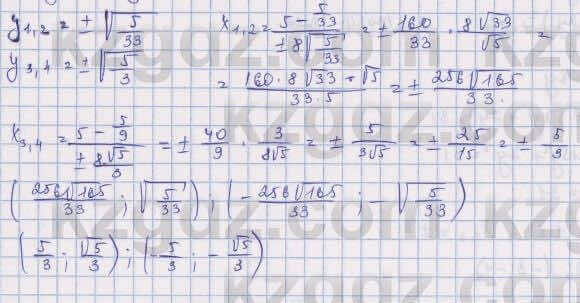 y₁,₂ = ± √(5/33)    x₁,₂ = (5 − 5/33)/(± 8√(5/33)) = ± 160/33 · 8√33/√5 =
y₃,₄ = ± √5/3    = (160 · 8√33 · √5)/(33 · 5) = ± 256√165/33.
x₃,₄ = (5 − 5/9)/(± 8√5/3) = ± 40/9 · 3/(8√5) = ± 5/(3√5) = ± 25/15 = ± 5/3
(256√165/33 ; √(5/33)) ; (− 256√165/33 ; − √(5/33))
(5/3 ; √5/3) ; (− 5/3 ; − √5/3)